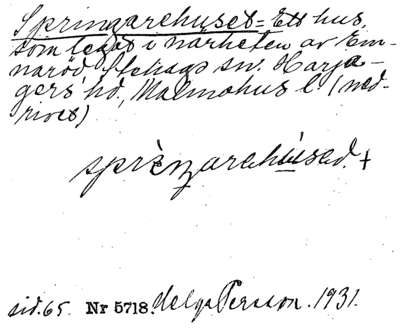 Springarehuset = Ett hus,
som legat i närheten av Em-
naröd, sn. Harja-
gers hd., Malmöhus l. (ned-
rivet)
sprìŋarehùsed. +
sid. 65. Nr 5718. Helga Persson. 1931.